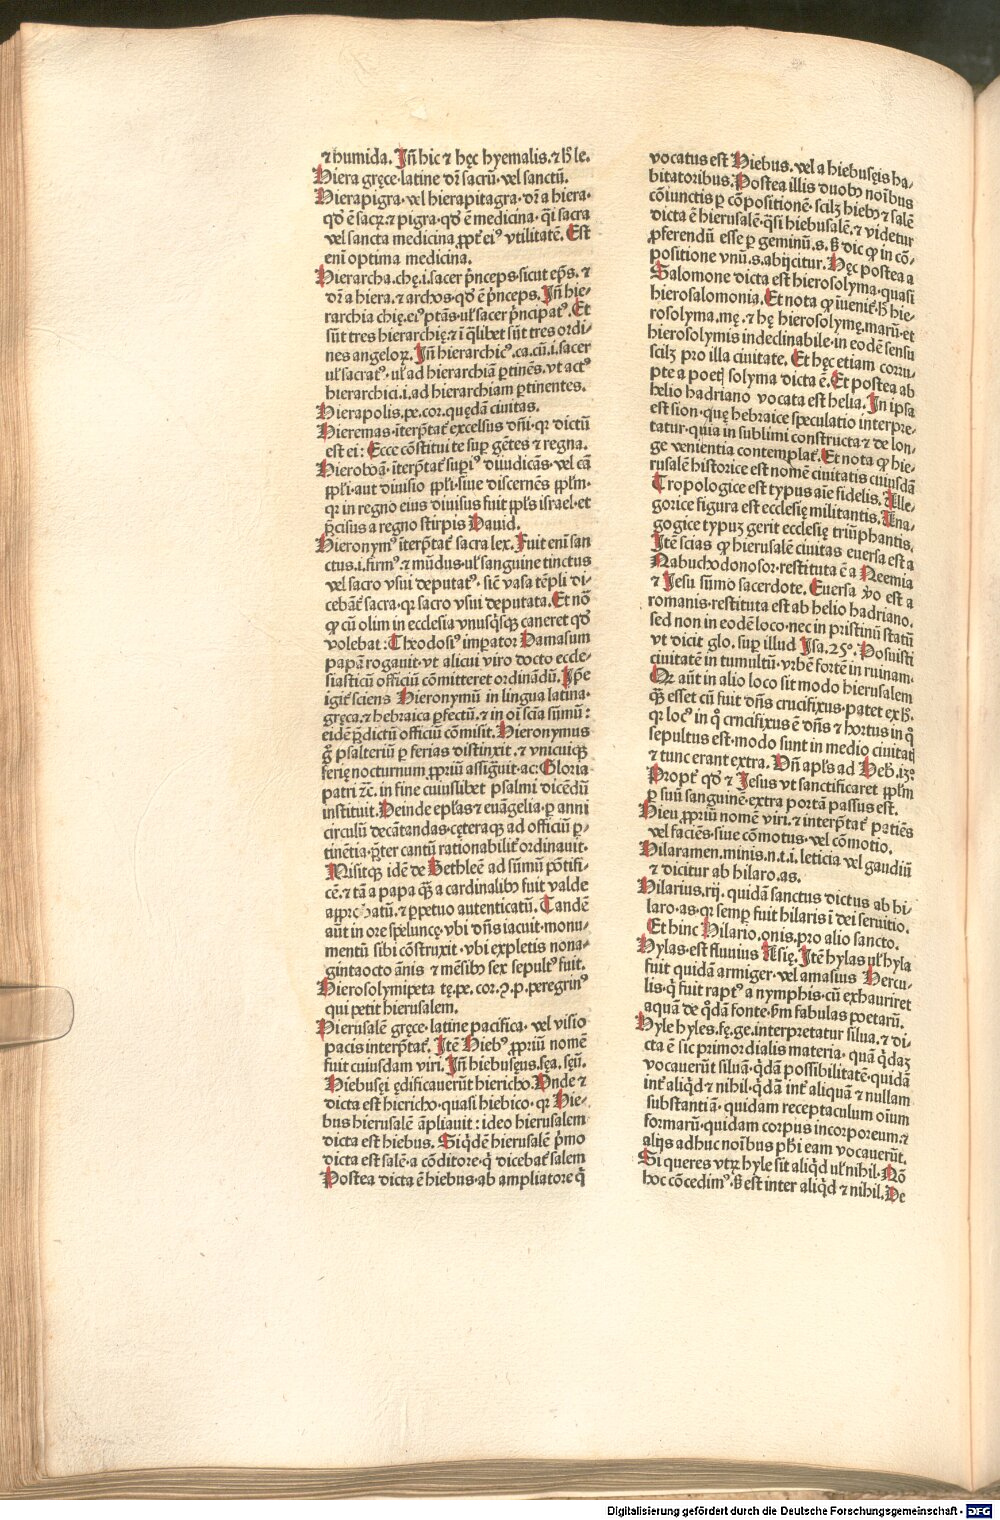 ⁊ humida. Jñ hic ⁊ hęc hyemalis. ⁊ ħ le.
Hiera gręce·latine dr̄ sacrū· vel sanctū.
Hierapigra· vel hierapitagra· dr̄ a hiera·
qđ ē sacꝝ.⁊ pigra· qđ ē medicina· q̄i sacra
vel sancta medicina ꝓpt̄ eiꝰ vtilitatē. Est
eni optima medicina.
Hierarcha.chę.i.sacer p̄nceps·sicut ep̄s. ⁊
dr̄ a hiera. ⁊ archos· qđ ē p̄nceps. Jñ hie⸗
rarchia chię.eiꝰ ptās· uł sacer p̄ncipatꝰ. Et
sūt tres hierarchię.⁊ i q̄libet sūt tres ordi⸗
nes angeloꝝ. Jñ hierarchicꝰ.ca.cū.i.sacer
uł sacratꝰ· uł ad hierarchiā ꝑtinēs. vt actꝰ
hierarchici.i.ad hierarchiam ꝑtinentes.
Hierapolis.pe.cor.quędā ciuitas.
Hieremas·īterp̄tat̄ excelsus dn̄i·qꝛ dictū
est ei: Ecce cōstitui te suꝑ gētes ⁊ regna.
Hieroboā· īterp̄tat̄ suꝑiꝰ diuudicās· vel cā
ppłi·aut diuisio ppłi·siue discernēs ppłm·
qꝛ in regno eius diuisus fuit ppłs israel·et
p̄cisus a regno stirpis Dauid.
Hieronymꝰ īterp̄tat̄ sacra lex. Fuit eni san
ctus.i.firmꝰ.⁊ mūdus·uł sanguine tinctus
vel sacro vsui deputatꝰ· sic̄ vasa tēpli di⸗
cebāt̄ sacra·qꝛ sacro vsui deputata. Et nō
ꝙ cū olim in ecclesia vnusq̄sqꝫ caneret qđ
volebat: Theodosiꝰ imꝑator Damasum
papā rogauit·vt alicui viro docto eccle⸗
siasticū officiū cōmitteret ordinādū. Jp̄e
igit̄ sciens Hieronymū in lingua latina·
gręca.⁊ hebraica ꝑfectū.⁊ in oī scīa sūmū:
eidē p̄dictū officiū cōmisit. Hieronymus
g̊ psalteriū ꝑ ferias distinxit.⁊ vnicuiqꝫ
ferię nocturnum ꝓpriū assignuit·ac: Gloria
patri ⁊c.in fine cuiuslibet psalmi dicēdū
instituit. Deinde epłas ⁊ euāgelia·ꝑ anni
circulū decātandas·cęteraqꝫ ad officiū ꝑ⸗
tinētia·p̄ter cantū rationabilit̄ ordinauit.
Misitqꝫ idē de Bethleē ad sūmū pōtifi⸗
cē.⁊ tā a papa qꝫ̄ a cardinalibꝫ fuit valde
approbatū.⁊ ꝑpetuo autenticatū. Tandē
aūt in ore spelunce·vbi dn̄s iacuit·monu⸗
mentū sibi cōstruxit·vbi expletis nona⸗
gintaocto ānis ⁊ mēsibꝫ sex sepultꝰ fuit.
Hierosolymipeta tę.pe.cor.ꝯ.p.peregrinꝰ
qui petit hierusalem.
Hierusalē gręce·latine pacifica· vel visio
pacis interp̄tat̄. Jtē Hiebꝰ ꝓpriū nomē
fuit cuiusdam viri. Jñ hiebusęus.sęa.sęū.
Hiebusęi ędificauerūt hiericho. Vnde ⁊
dicta est hiericho·quasi hiebico·qꝛ Hie⸗
bus hierusalē āpliauit: ideo hierusalem
dicta est hiebus. Siq̄dē hierusalē p̄mo
dicta est salē·a cōditore·q̄ dicebat̄ salem
Postea dicta ē hiebus·ab ampliatore q̄
vocatus est Hiebus. vel a hiebusęis ha⸗
bitatoribus. Postea illis duobꝫ noībus
cōiunctis ꝑ cōpositionē·scilꝫ hiebꝫ ⁊ salē
dicta ē hierusalē·q̄si hiebusalē.⁊ videtur
ꝓferendū esse ꝑ geminū.s. ß dic ꝙ in cō⸗
positione vnū.s.abijcitur. Hęc postea a
Salomone dicta est hierosolyma·quasi
hierosalomonia. Et nota ꝙ iuenit̄·ħ hie⸗
rosolyma.mę.⁊ hę hierosolymę.marū·et
hierosolymis indeclinabile·in eodē sensu
scilꝫ pro illa ciuitate. Et hęc etiam corru⸗
pte a poetꝭ solyma dicta ē. Et postea ab
helio hadriano vocata est helia. Jn ipsa
est sion·quę hebraice speculatio interpre⸗
tatur·quia in sublimi constructa ⁊ de lon⸗
ge venientia contemplat̄. Et nota ꝙ hie⸗
rusalē historice est nomē ciuitatis cuiusdā
Tropologice est typus aīe fidelis. Alle⸗
gorice figura est ecclesię militantis. Ana⸗
gogice typuꝫ gerit ecclesię triūphantis.
Jtē scias ꝙ hierusalē ciuitas euersa est a
Nabuchodonosor·restituta ē a Neemia
⁊ Jesu sūmo sacerdote. Euersa v̊o est a
romanis·restituta est ab helio hadriano.
sed non in eodē loco·nec in pristinū statū
vt dicit glo. suꝑ illud Jsa.25º. Posuisti
ciuitatē in tumultū·vrbē fortē in ruinam·
Qꝛ aūt in alio loco sit modo hierusalem
qꝫ̄ esset cū fuit dn̄s crucifixus·patet ex ħ.
qꝛ locꝰ in q̊ crncifixus ē dn̄s ⁊ hortus in q̊
sepultus est·modo sunt in medio ciuitatꝭ
⁊ tunc erant extra. Vñ apłs ad Heb.13º
Propt̄ qđ ⁊ Jesus vt sanctificaret ppłm
ꝑ suū sanguinē·extra portā passus est.
Hieu ꝓpriū nomē viri.⁊ interp̄tat̄ patiēs
vel faciēs·siue cōmotus·vel cōmotio.
Hilaramen.minis.n.t.i. leticia vel gaudiū
⁊ dicitur ab hilaro.as.
Hilarius.rij. quidā sanctus dictus ab hi⸗
laro·as·qꝛ semꝑ fuit hilaris ī dei seruitio.
Et hinc Hilario.onis.pro alio sancto.
Hylas·est fluuius Asię. Jtē hylas uł hyla
fuit quidā armiger·vel amasius Hercu⸗
lis·q̄ fuit raptꝰ a nymphis·cū exhauriret
aquā de q̄dā fonte·ẜm fabulas poetarū.
Hyle hyles.fę.ge.interpretatur silua.⁊ di⸗
cta ē sic primordialis materia· quā q̄daꝫ
vocauerūt siluā·q̄dā possibilitatē·quidā
int̄ aliqđ ⁊ nihil·q̄dā int̄ aliquā ⁊ nullam
substantiā· quidam receptaculum oīum
formarū·quidam corpus incorporeum.⁊
alijs adhuc noībus ph̄i eam vocauerūt.
Si queres vtꝝ hyle sit aliqđ uł nihil· Nō
hoc cōcedimꝰ· ß est inter aliqđ ⁊ nihil. De
Digitalisierung gefördert durch die Deutsche Forschungsgemeinschaft - DFG